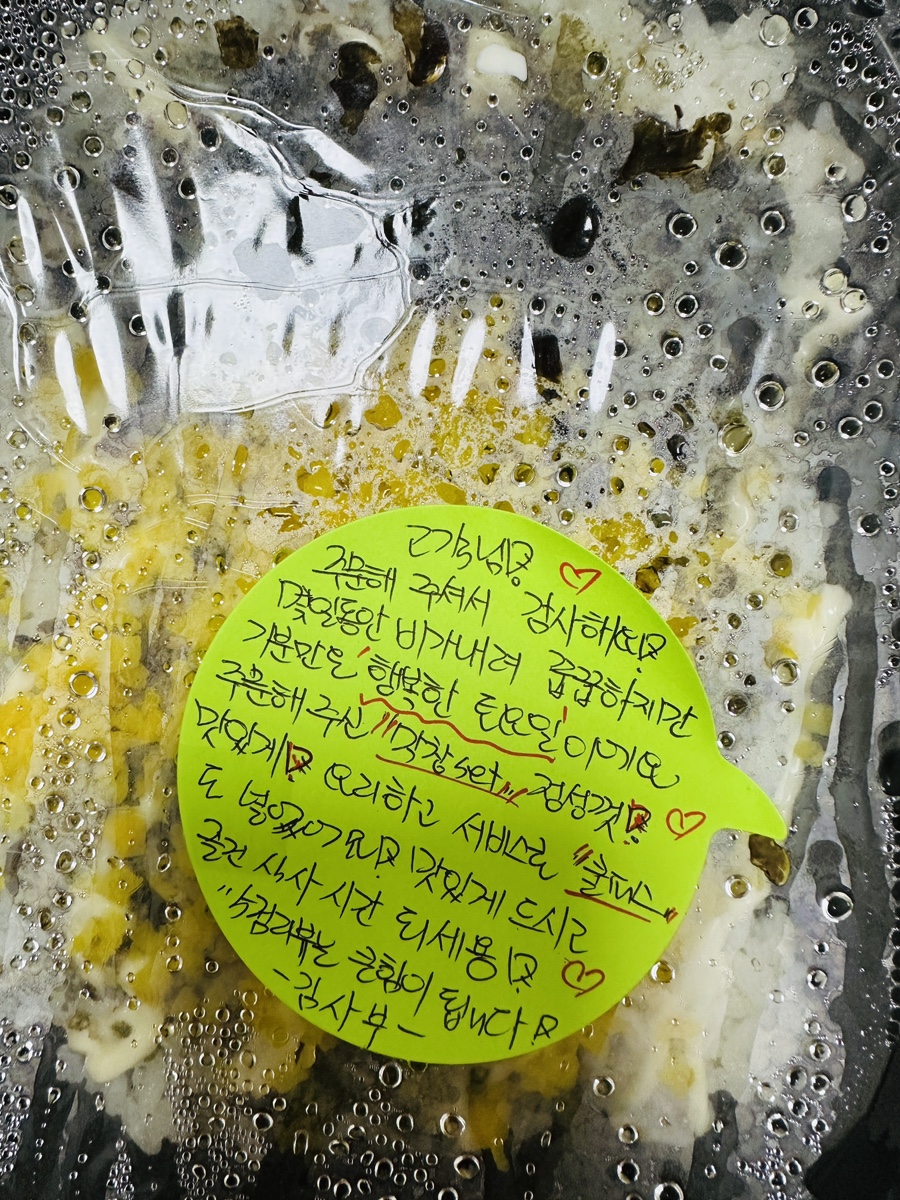 고객님!
주문해 주셔서 감사해요!
몇일동안 비가내려 꿉꿉하지만
기분만은 '행복한 토요일' 이에요
주문해 주신 "막장set" 정성껏!
맛있게! 요리하고 서비스로 "쿨피스"
도 넣었어요! 맛있게 드시고
즐건 식사 시간 되세용!
"5점리뷰는 큰힘이 됩니다!
-김사부-